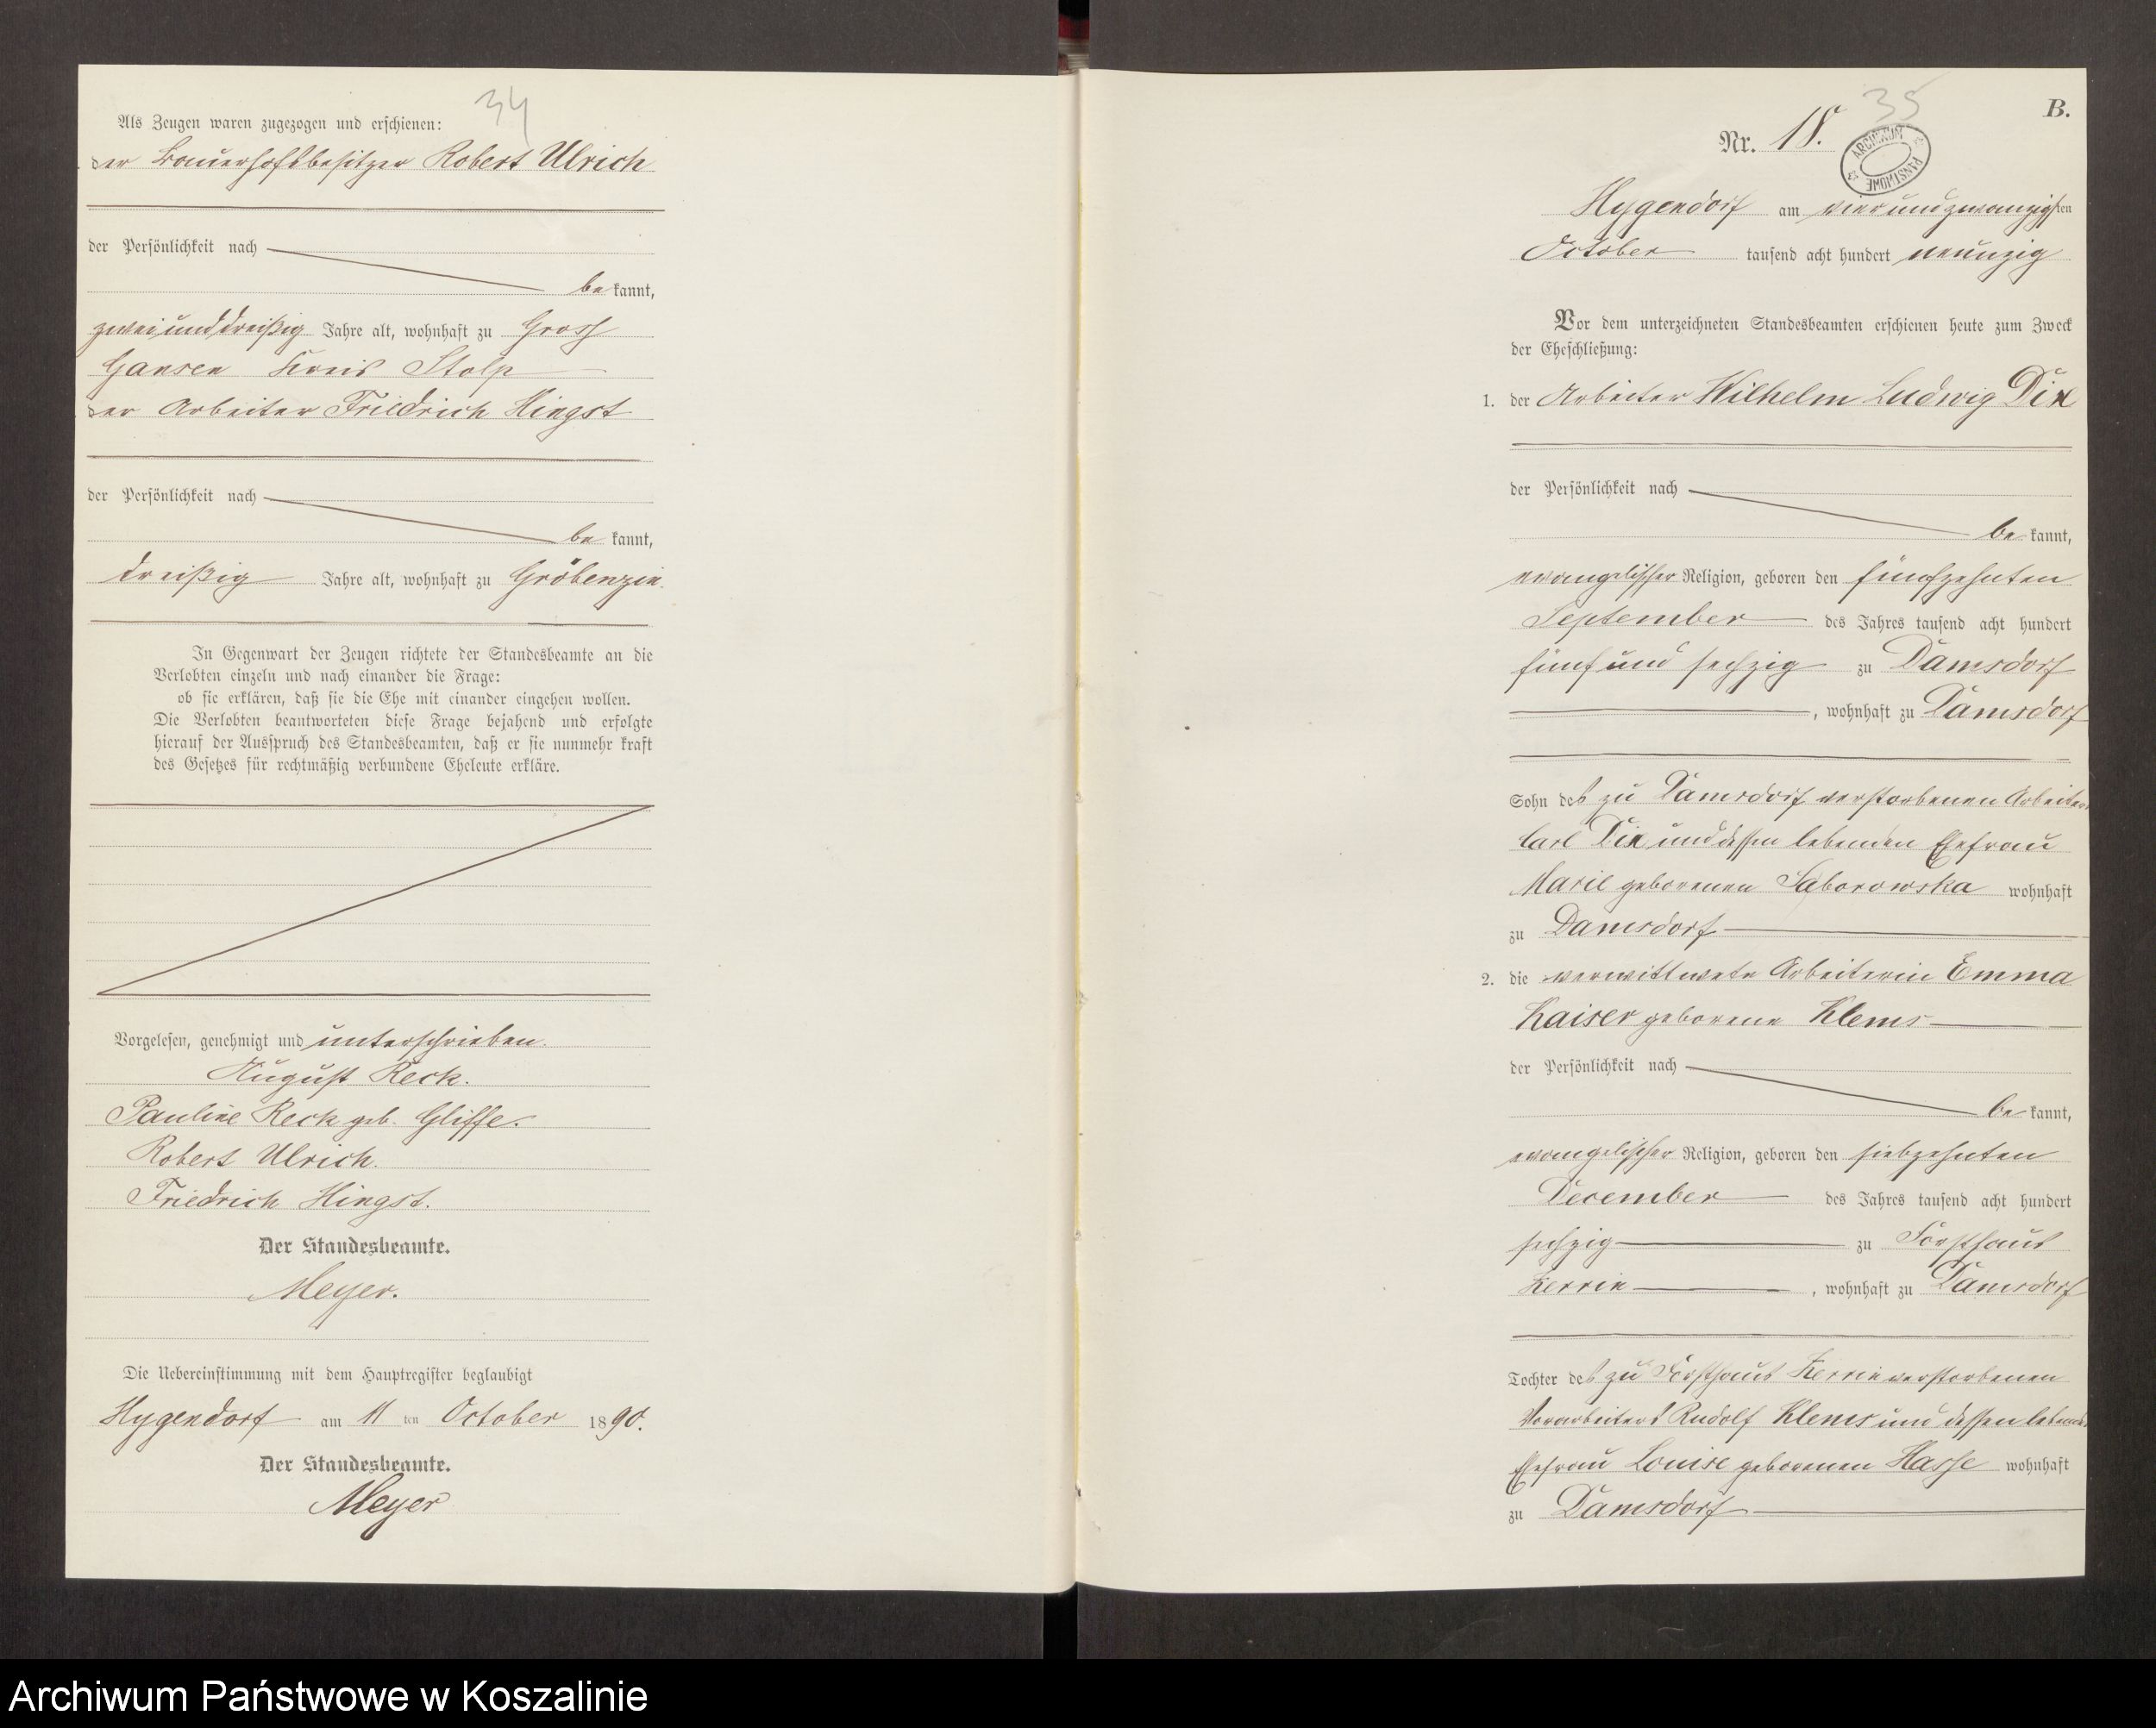 34
Als Zeugen waren zugezogen und erschienen:
der Bauerhofsbesitzer Robert Ulrich
der Persönlichkeit nach
be kannt,
zweiunddreißig Jahre alt, wohnhaft zu Gross
Gansen Kreis Stolp
der Arbeiter Friedrich Hingst
der Persönlichkeit nach
be kannt,
dreißig Jahre alt, wohnhaft zu Gröbenzin
In Gegenwart der Zeugen richtete der Standesbeamte an die
Verlobten einzeln und nach einander die Frage:
ob sie erklären, daß sie die Ehe mit einander eingehen wollen.
Die Verlobten beantworteten diese Frage bejahend und erfolgte
hierauf der Ausspruch des Standesbeamten, daß er sie nunmehr kraft
des Gesetzes für rechtmäßig verbundene Eheleute erkläre.
Vorgelesen, genehmigt und unterschrieben.
August Reck.
Pauline Reck geb. Gliffe.
Robert Ulrich.
Friedrich Hingst.
Der Standesbeamte.
Meyer.
Die Uebereinstimmung mit dem Hauptregister beglaubigt
Hygendorf am 11 ten October 1890.
Der Standesbeamte.
Meyer
35
B.
Nr. 18.
ARCHIWUM PAŃSTWOWE
Hygendorf am vierundzwanzigsten
October tausend acht hundert neunzig
Vor dem unterzeichneten Standesbeamten erschienen heute zum Zweck
der Eheschließung:
1. der Arbeiter Wilhelm Ludwig Dix
der Persönlichkeit nach
be kannt,
evangelischer Religion, geboren den fünfzehnten
September des Jahres tausend acht hundert
fünf und sechzig zu Damsdorf
, wohnhaft zu Damsdorf
Sohn des zu Damsdorf verstorbenen Arbeiters
Carl Dix und dessen lebenden Ehefrau
Marie geborenen Saborowska wohnhaft
zu Damsdorf
2. die verwittwete Arbeiterin Emma
Kaiser geborene Klems
der Persönlichkeit nach
be kannt,
evangelischer Religion, geboren den siebzehnten
December des Jahres tausend acht hundert
sechzig zu Forsthaus
Zerrin , wohnhaft zu Damsdorf
Tochter des zu Forsthaus Zerrin verstorbenen
Vorarbeiters Rudolf Klems und dessen lebenden
Ehefrau Louise geborenen Hasse wohnhaft
zu Damsdorf
Archiwum Państwowe w Koszalinie